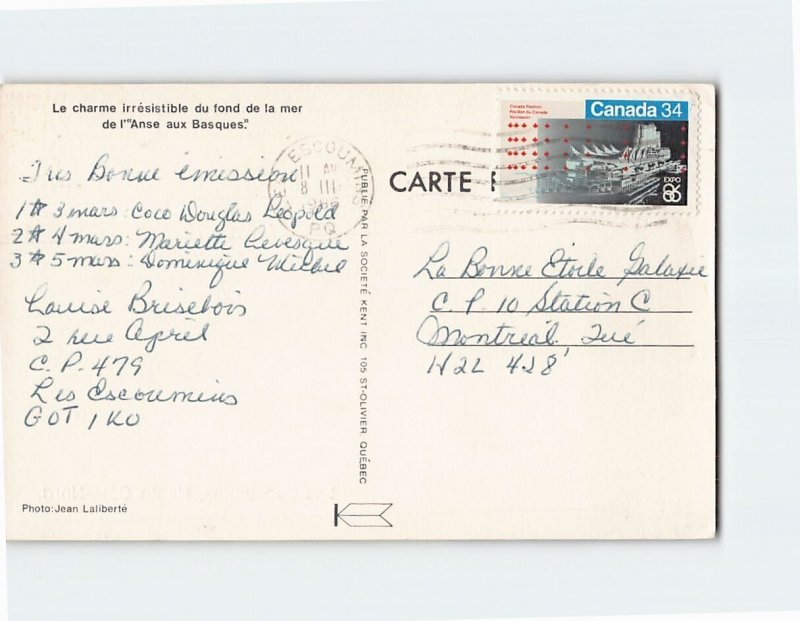 Le charme irrésistible du fond de la mer
de l'"Anse aux Basques."
Tres Bonne émission
1 ☆ 3 mars: Coco Douglas Leopold
2 ☆ 4 mars: Mariette Levesque
3 ☆ 5 mars: Dominique Michel
Louise Brisebois
2 rue April
C.P. 479
Les Escoumins
G0T 1K0
Photo: Jean Laliberté
PUBLIÉ PAR LA SOCIETÉ KENT INC 105 ST-OLIVIER QUÉBEC
ESCOUM
11 AV
8 III
PQ
CARTE
Canada Pavilion
Pavillon du Canada
Vancouver
Canada 34
EXPO
86
La Bonne Etoile Galaxie
C.P. 10 Station C
Montréal, Qué
H2L 4J8